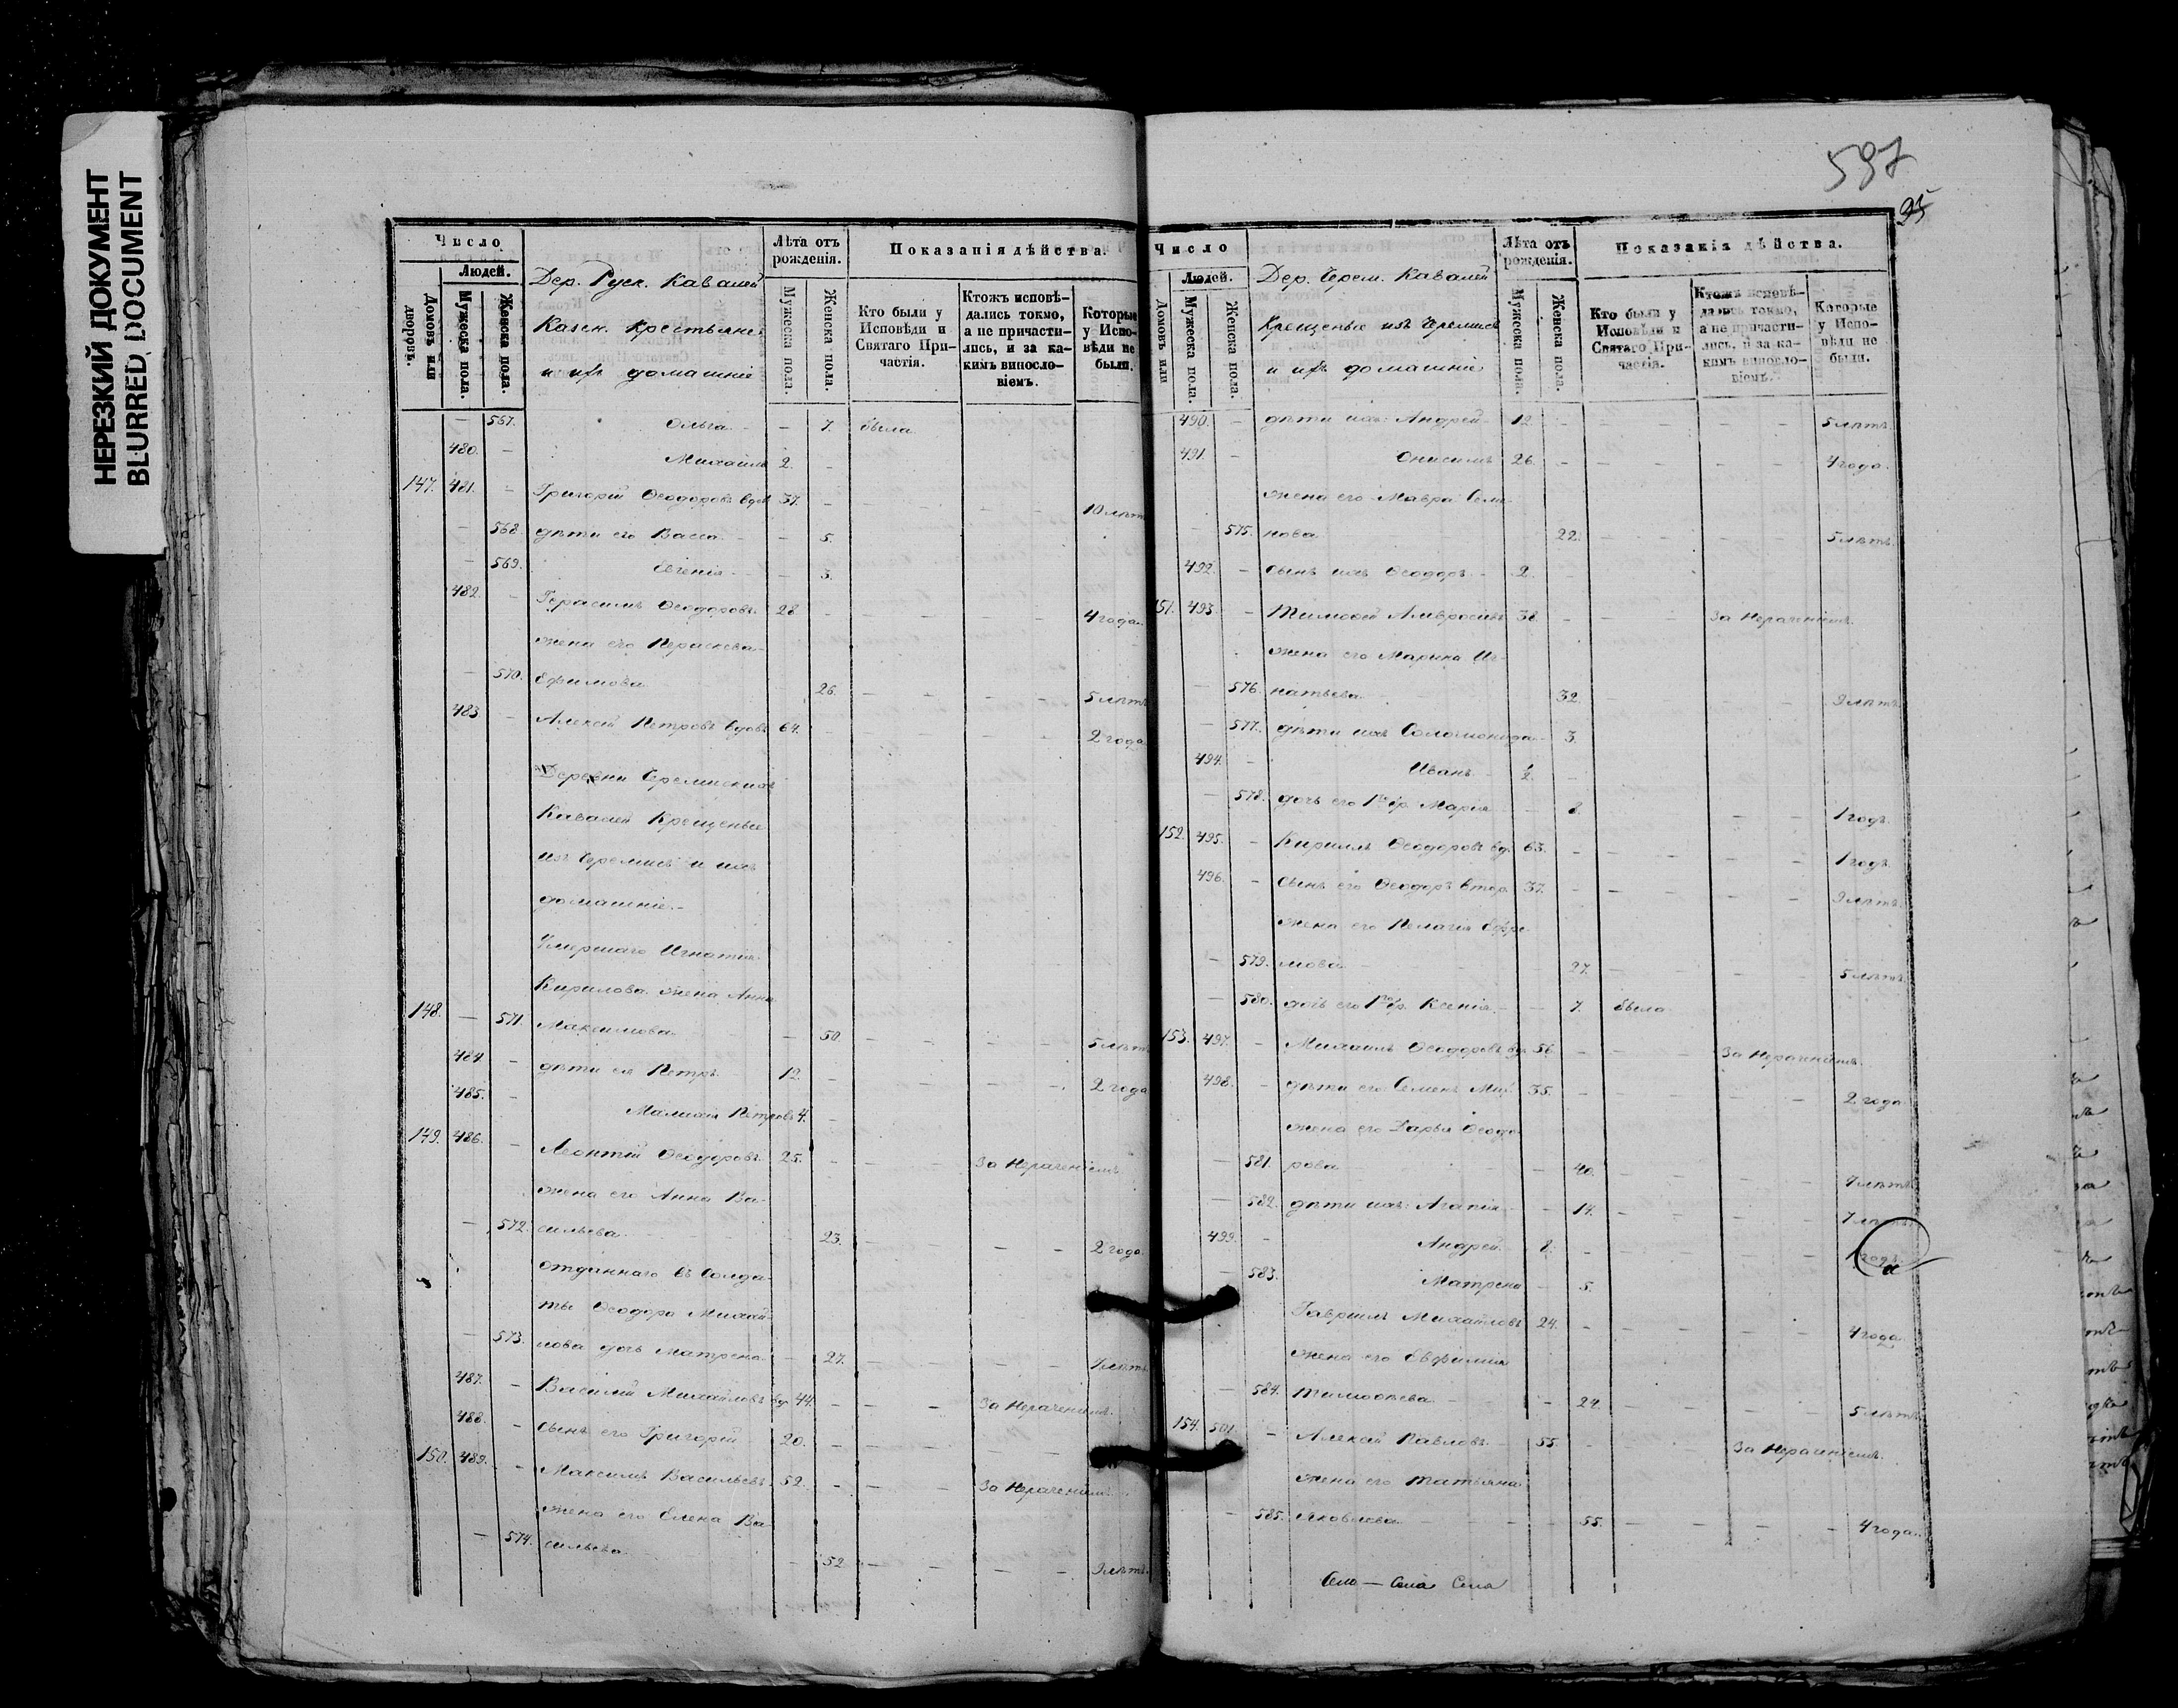 НЕРЕЗКИЙ ДОКУМЕНТ
BLURRED DOCUMENT
597
95
Число
Людей.
Домовъ или дворовъ.
Мужеска пола.
Женска пола.
Дер. Руск. Кавалей
Казен. крестьяне
и ихъ домашніе
Лѣта отъ рожденія.
Мужеска пола.
Женска пола.
Показанія дѣйства.
Кто были у Исповѣди и Святаго Причастія.
Ктожъ исповѣдались токмо, а не причастились, и за какимъ винословіемъ.
Которые у Исповѣди не были.
— 567. Ольга — 7. была
480. — Михаилъ 2. —
147. 481. — Григорій Ѳеодоровъ вдов 37. — 10 лѣт
— 568. дѣти его Васса — 5.
— 569. Евгенія — 3.
482. — Герасимъ Ѳеодоровъ 28 — 4 года
жена его Параскева
— 570. Ефимова 26. — 5 лѣтъ
483 — Алексѣй Петровъ вдовъ 64. — 2 года
Деревни Черемискихъ
Кавалей Крещеные
изъ Черемисъ и ихъ
домашніе.
Умершаго Игнатія
Кирилова жена Анна
148. — 571. Максимова — 50 — 5 лѣт
484 — дѣти ея Петръ 12. — 2 года
485. — Петровъ 4. —
149. 486. — Леонтій Ѳеодоровъ 25. — За нераченіемъ
жена его Анна Ва-
— 572. сильева 23. — 2 года
отданнаго въ Солда-
ты Ѳеодора Михай-
— 573. лова дочь Матрена — 27. — лѣтъ
487. — Василій Михайловъ вд. 44. — За нераченіемъ
488. — сынъ его Григорій 20. —
150. 489. — Максимъ Васильевъ 52. — За нераченіемъ
жена его Елена Ва-
— 574. сильева — 52 — 9 лѣтъ
Число
Людей.
Домовъ или
Мужеска пола.
Женска пола.
Дер. Черем. Кавалей
Крещеные изъ Черемисъ
и ихъ домашніе
Лѣта отъ рожденія.
Мужеска пола.
Женска пола.
Показанія дѣйства.
Кто были у Исповѣди и Святаго Причастія.
Ктожъ исповѣдались токмо, а не причастились, и за какимъ винословіемъ.
Которые у Исповѣди не были.
490. — дѣти ихъ: Андрей 12 — 5 лѣтъ
491. — Онисимъ 26. — 4 года.
жена его Мавра Семе-
— 575. нова 22. — 5 лѣтъ
492. — сынъ ихъ Ѳеодоръ 2.
151. 493. — Тимоѳей Амвросіевъ 38. — За нераченіемъ
жена его Марина Иг-
— 576. натьева 32. — 9 лѣтъ
— 577. дѣти ихъ Соломонида 3.
494. — Иванъ ½. —
— 578. дочь его 1го бр. Марія — 8. — 1 годъ.
152. 495. — Кириллъ Ѳеодоровъ вд. 63. — 1 годъ.
496. — сынъ его Ѳеодоръ втор. 37. — 9 лѣтъ.
жена его Пелагія Ефре-
— 579. мова 27. — 5 лѣтъ
— 580. дочь его 1го бр. Ксенія — 7. была
153. 497. — Михаилъ Ѳеодоровъ вд. 56 — За нераченіемъ.
498. — дѣти его Семенъ Мих. 35. — 2 года
жена его Дарья Ѳеодо-
— 581. рова — 40. — 7 лѣтъ.
— 582. дѣти ихъ: Агапія — 14. — 7 лѣтъ
499. — Андрей. 8. — 1 годъ.
— 583. Матрена — 5.
Гавріилъ Михайловъ 24. — 4 года.
жена его Евфимія
— 584. Тимоѳеева — 24. — 5 лѣтъ
154. 501 — Алексѣй Павловъ 55. — За нераченіемъ.
жена его Татьяна
— 585. Яковлева — 55. — 4 года.